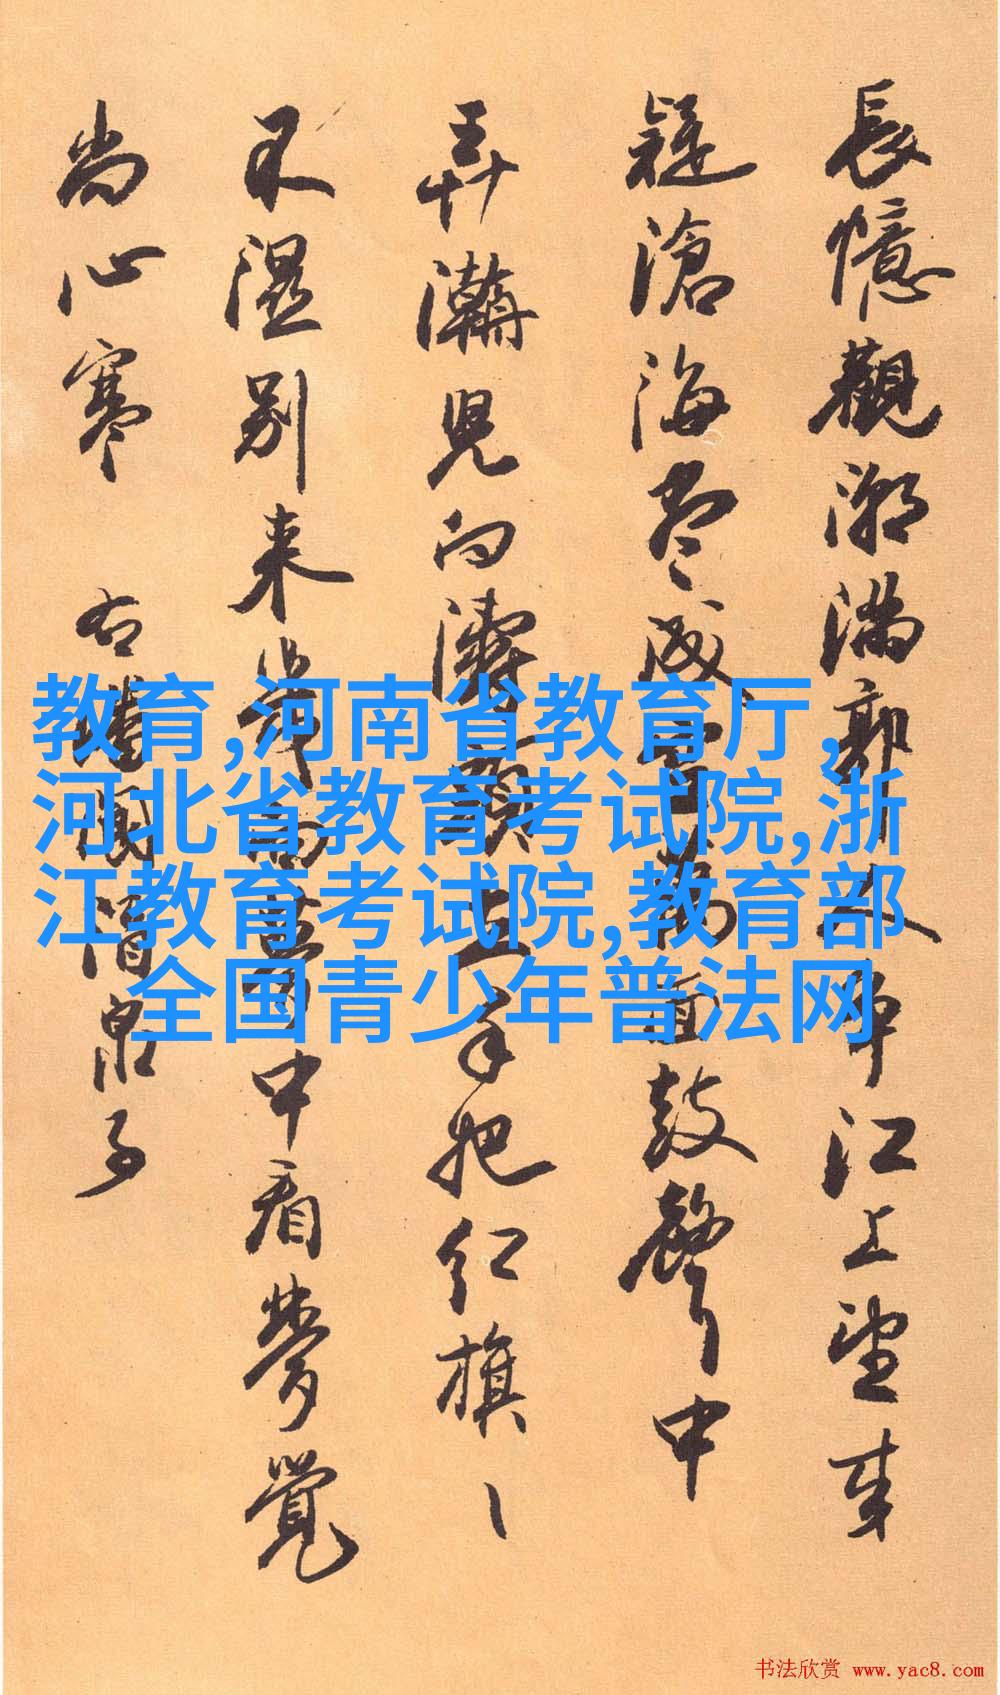 長憶觀潮滿郭人争江上望来
疑滄海盡成空萬面鼓聲中
弄潮兒向濤頭立手把紅旗、
不濕別来幾向夢中看夢覺
尚心寒 右潘閬酒泉子
教育,河南省教育厅,
河北省教育考试院,浙
江教育考试院,教育部
全国青少年普法网
书法欣赏 www.yac8.com